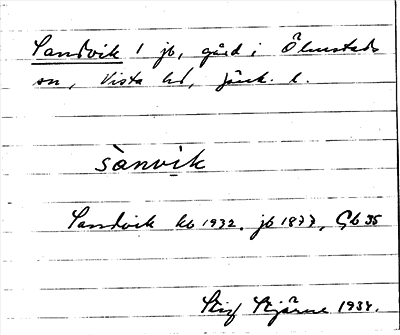 Sandvik 1 jb, gård i Ölmstads
sn, Vista hd, Jönk. l.
sànvik
Sandvik kb 1932. jb 1877, Gb 35
Stig Bjärne 1934.